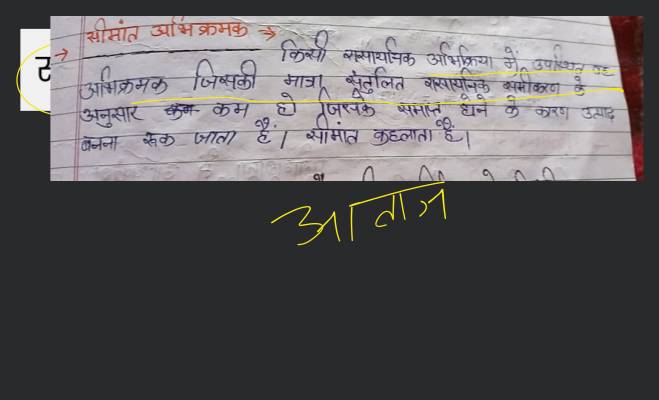 → सीमांत अभिक्रमक →
किसी रासायनिक अभिक्रिया में उपस्थित वह
अभिक्रमक जिसकी मात्रा संतुलित रासायनिक समीकरण के
अनुसार कम हो जिसके समाप्त होने के कारण उत्पाद
बनना रूक जाता है। सीमांत कहलाता है।